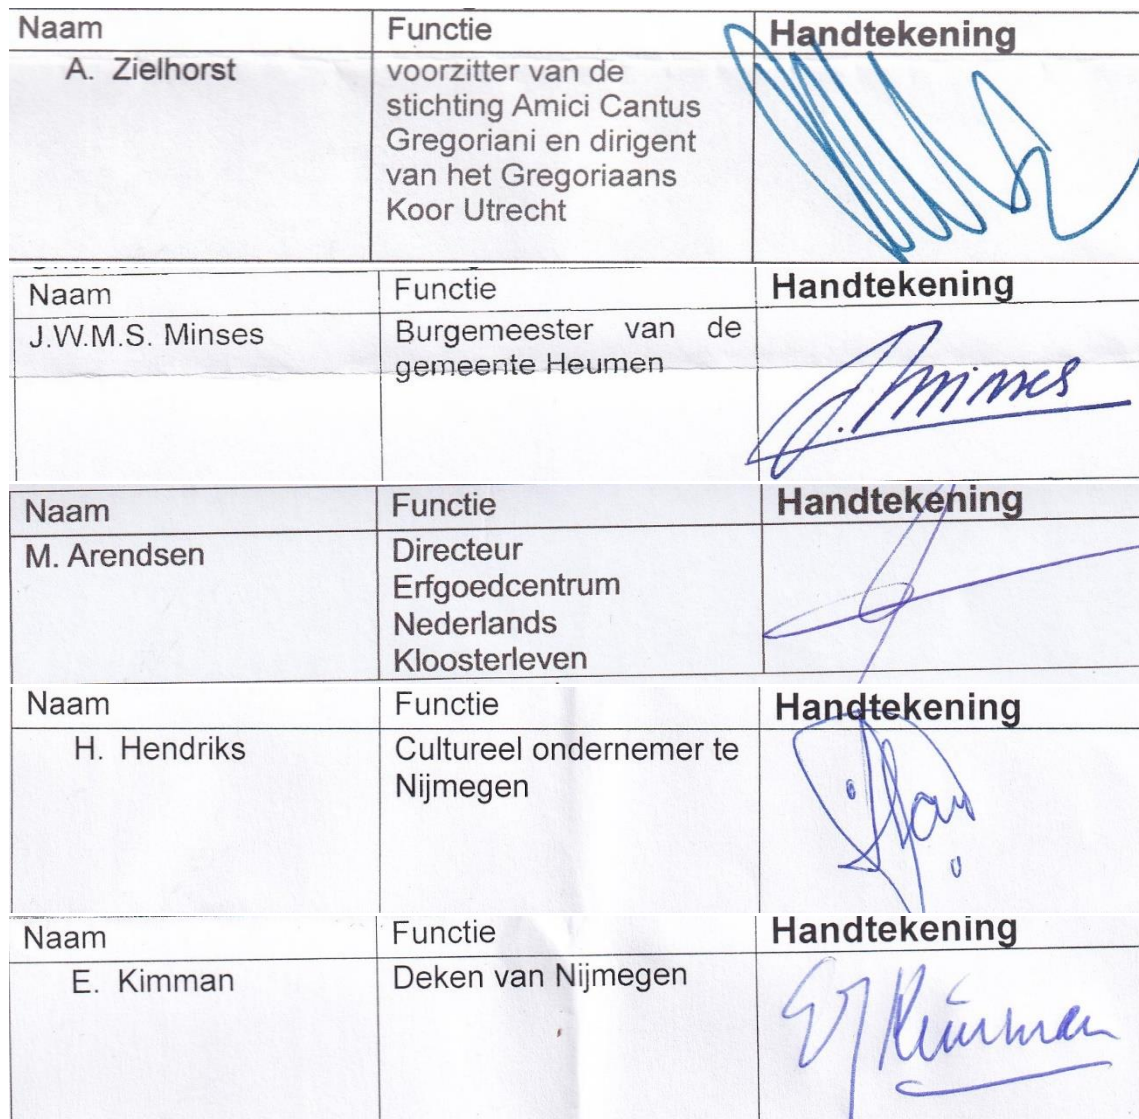 Naam Functie Handtekening
A. Zielhorst voorzitter van de
stichting Amici Cantus
Gregoriani en dirigent
van het Gregoriaans
Koor Utrecht
Naam Functie Handtekening
J.W.M.S. Minses Burgemeester van de
gemeente Heumen
J. Minses
Naam Functie Handtekening
M. Arendsen Directeur
Erfgoedcentrum
Nederlands
Kloosterleven
Naam Functie Handtekening
H. Hendriks Cultureel ondernemer te
Nijmegen
Naam Functie Handtekening
E. Kimman Deken van Nijmegen
EJ Kimman